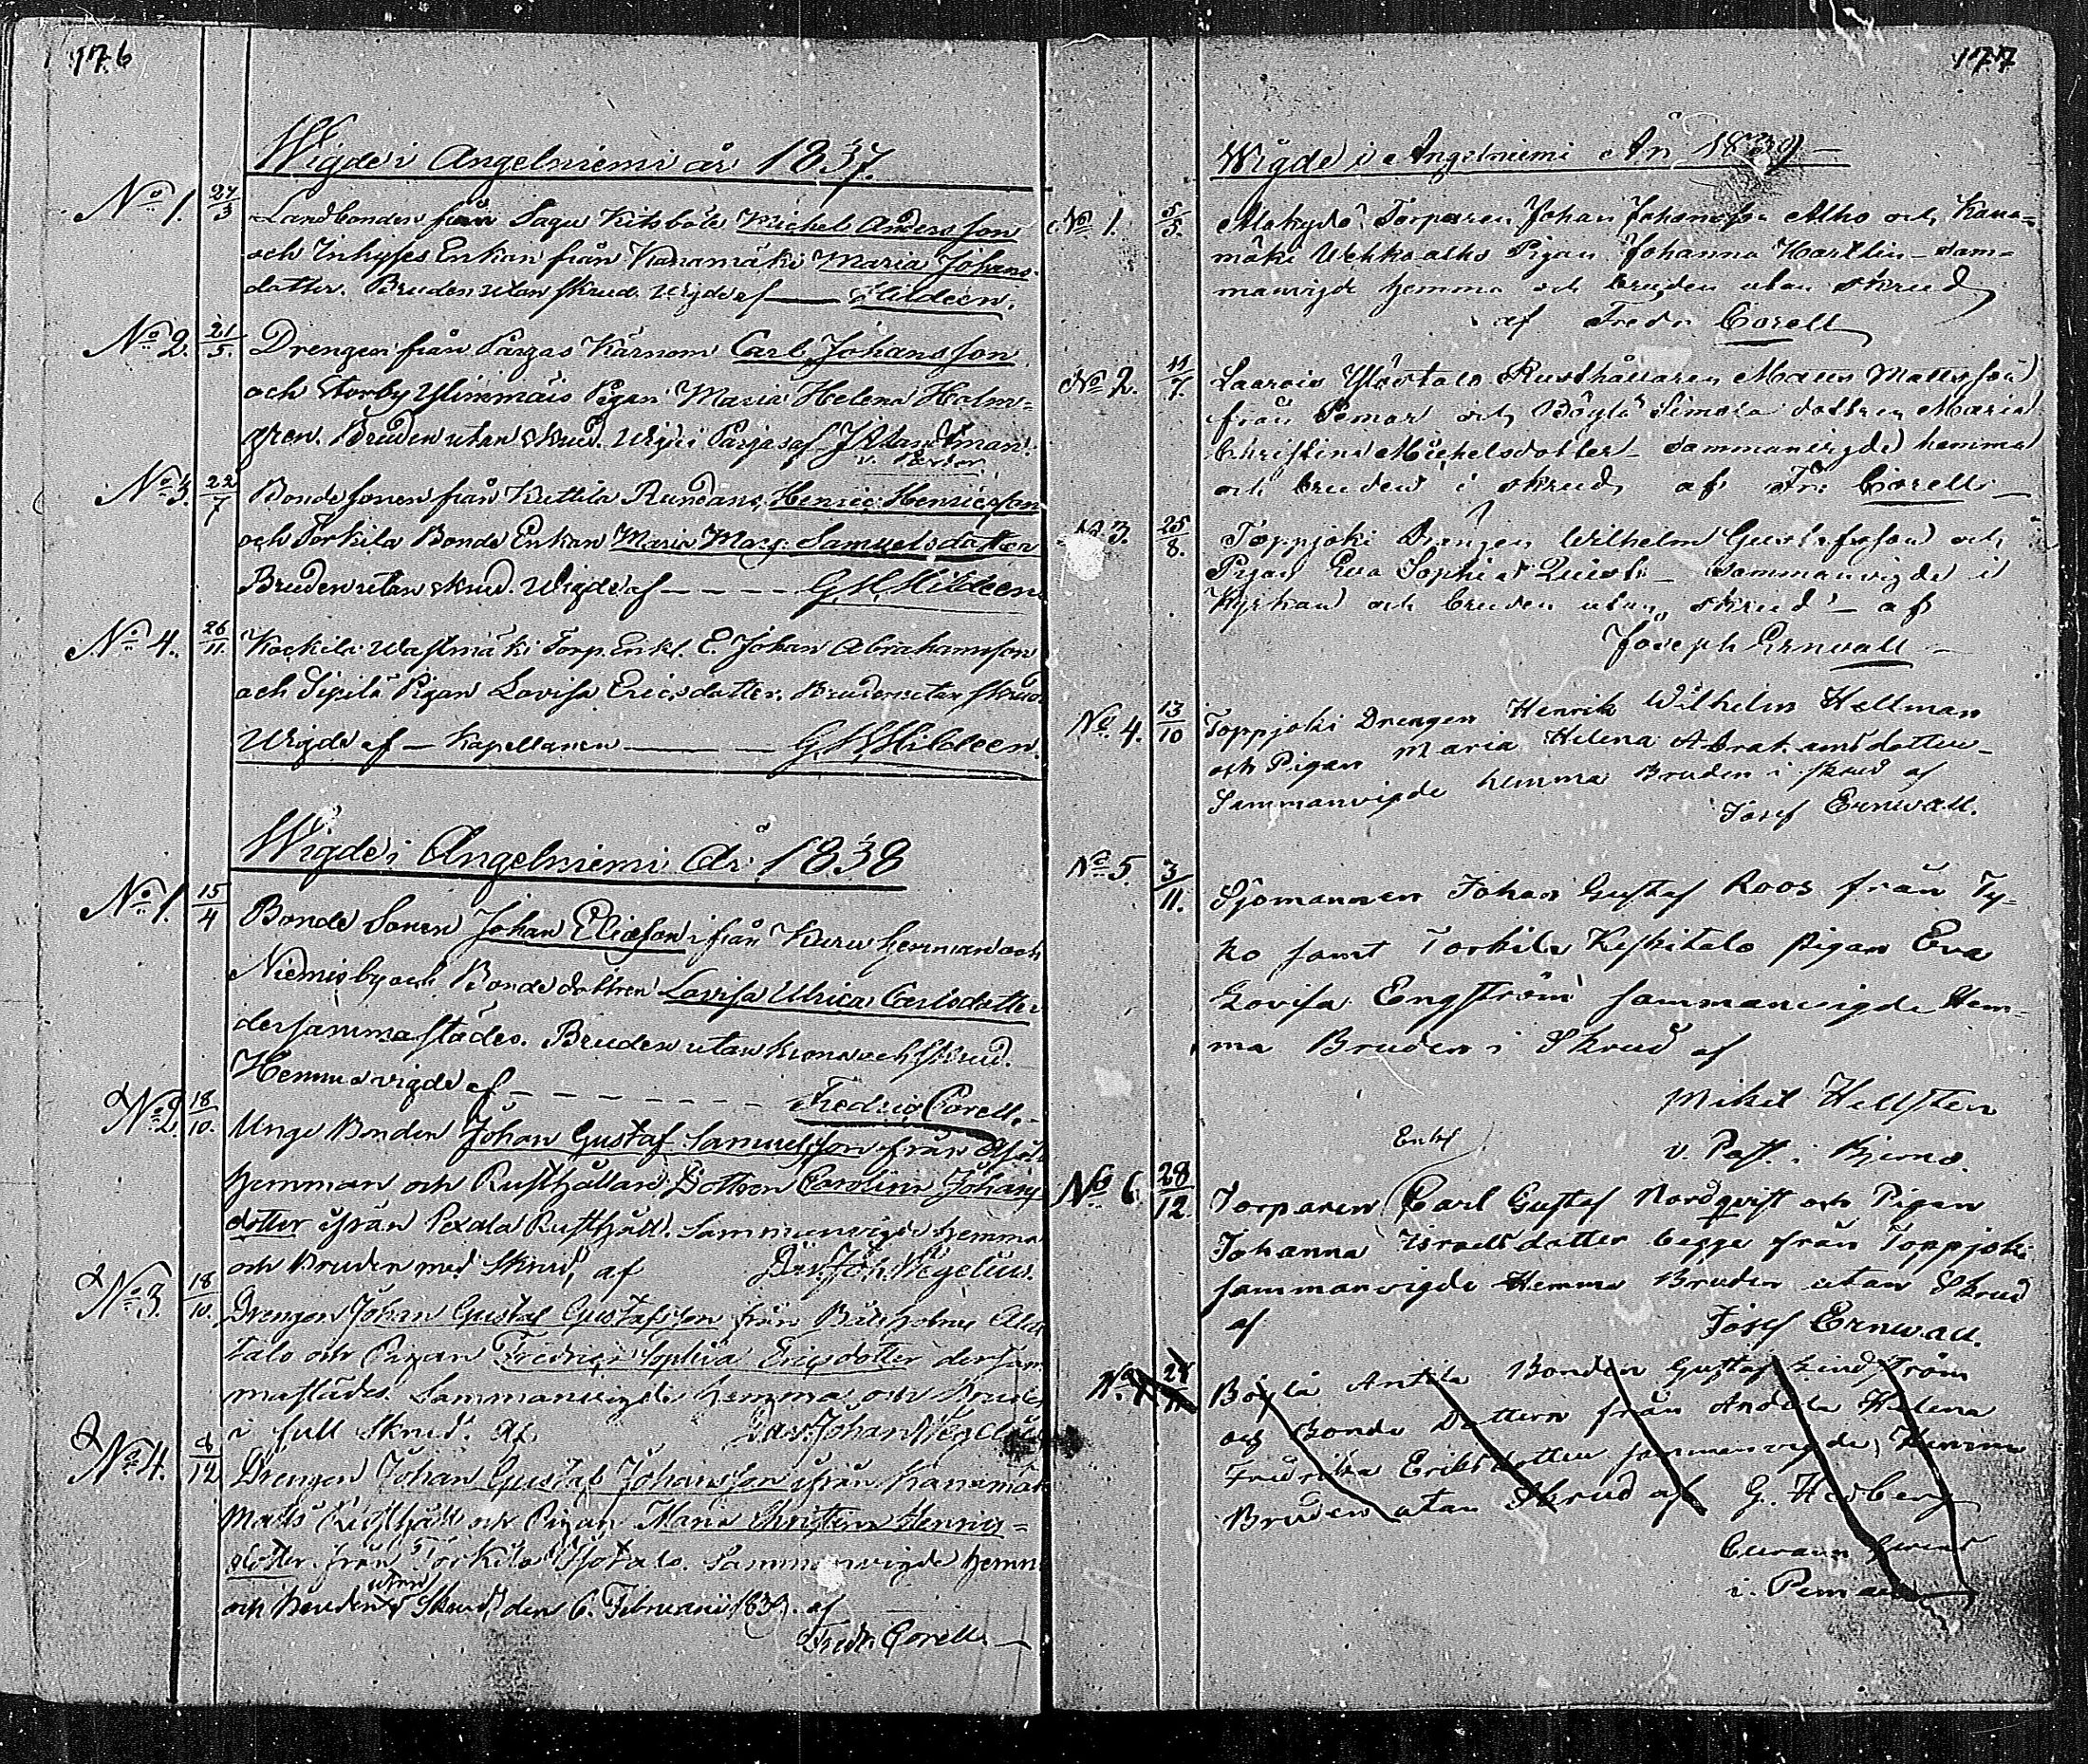 176
Wigde i Angelniemi år 1837.
No 1. 27/3 Landbonden från Sagu Kitsböle Michel Andersson
och Inhyses Enkan från Kanamäki Maria Johans-
dotter. Bruden utan skrud. Wigde af — Hildeen.
No 2. 21/5. Drengen från Pargas Kärnom Carl Johansson
och Storby Ylimmäis Pigan Maria Helena Holm-
gren. Bruden utan skrud. Wigde i Pargas af
v. Pastor.
No 3. 22/7 Bondesonen från Kuttila Rundans Henric Henricsson
och Torkila Bonde Enkan Maria Marg: Samuelsdotter
Bruden utan skrud. Wigde af - - - - G. H. Hildeen
No 4. 26/11 Kockila Wastmäki Torp. Enkl. E. Johan Abrahamsson
och Sipilä Pigan Lovisa Ericsdotter. Bruden utan skrud
Wigde af — Kapellanen — G. H. Hildeen.
Wigde i Angelniemi År 1838
No 1. 15/4 Bonde Sonen Johan Eliasson ifrån Kuru hemman och
Niemis by och Bonde dottren Lovisa Ulrica Carlsdotter
dersammastädes. Bruden utan krona och skrud.
Hemma vigde af - - - - - - - - Fredric Corell.
No 2. 18/10. Unge Bonden Johan Gustaf Samuelsson från
hemman och Rusthållare Dottren Carolina Johans
dotter ifrån Pexala Rusthåll. Sammanvigde hemma
och Bruden med Skrud, af Dav. Joh. Wegelius.
No 3. 18/10. Drengen Johan Gustaf Gustafsson från Båtholms Ala
talo och Pigan Fredrica Sophia Ericsdotter dersam
mastädes. Sammanvigde hemma och Bruden
i full skrud. af Dav. Johan Wegelius
No 4. 6/12 Drengen Johan Gustaf Johansson ifrån Kanamäki
Matts Rusthåll och Pigan Maria Christina Henrics-
dotter från Torkila Isotalo. Sammanvigde hemma
och Bruden utan Skrud, den 6. Februarii 1839. af
Fredr. Corell.
177
Wigde i Angelniemi År 1839
No 1. 5/5. Torparen Johan Johansson Alho och Kana-
mäki Uhkoalho Pigan Johanna Karllin - Sam-
manvigde hemma och bruden utan skrud
af Fredr. Corell
No 2. 11/7. Rusthållaren Matts Mattsson
från Pemar och Böylä Simola dottren Maria
Christina Michelsdotter - Sammanvigde hemma
och bruden i skrud, af Fr: Corell
No 3. 25/8. Toppjoki Drängen Wilhelm Gustafsson och
Pigan Eva Sophia Quist - Sammanvigde i
Kyrkan och bruden utan skrud - af
Joseph Ernvall
No 4. 13/10 Toppjoki Drengen Henrik Wilhelm Hellman
och Pigan Maria Helena Abrahamsdotter -
Sammanvigde hemma Bruden i skrud af
Josef Ernwall.
No 5. 3/11. Sjömannen Johan Gustaf Roos från Ty-
ko samt Torkila Keskitalo pigan Eva
Lovisa Engström sammanvigde Hem-
ma Bruden i Skrud af
Mikel Hellsten
v. Past. i Bjerno.
Enkl
No 6. 28/12. Torparen Carl Gustaf Nordqvist och Pigan
Johanna Israelsdotter begge från Toppjoki
sammanvigde Hemma Bruden utan Skrud
af Josef Ernwall.
No 7 24/11 Böylä Antila Bonden Gustaf Lindström
och Bonde Dottern från Andela Helena
Fredrika Eriksdotter sammanvigde, Hemma
Bruden utan Skrud af G. Hedberg
i Pemar